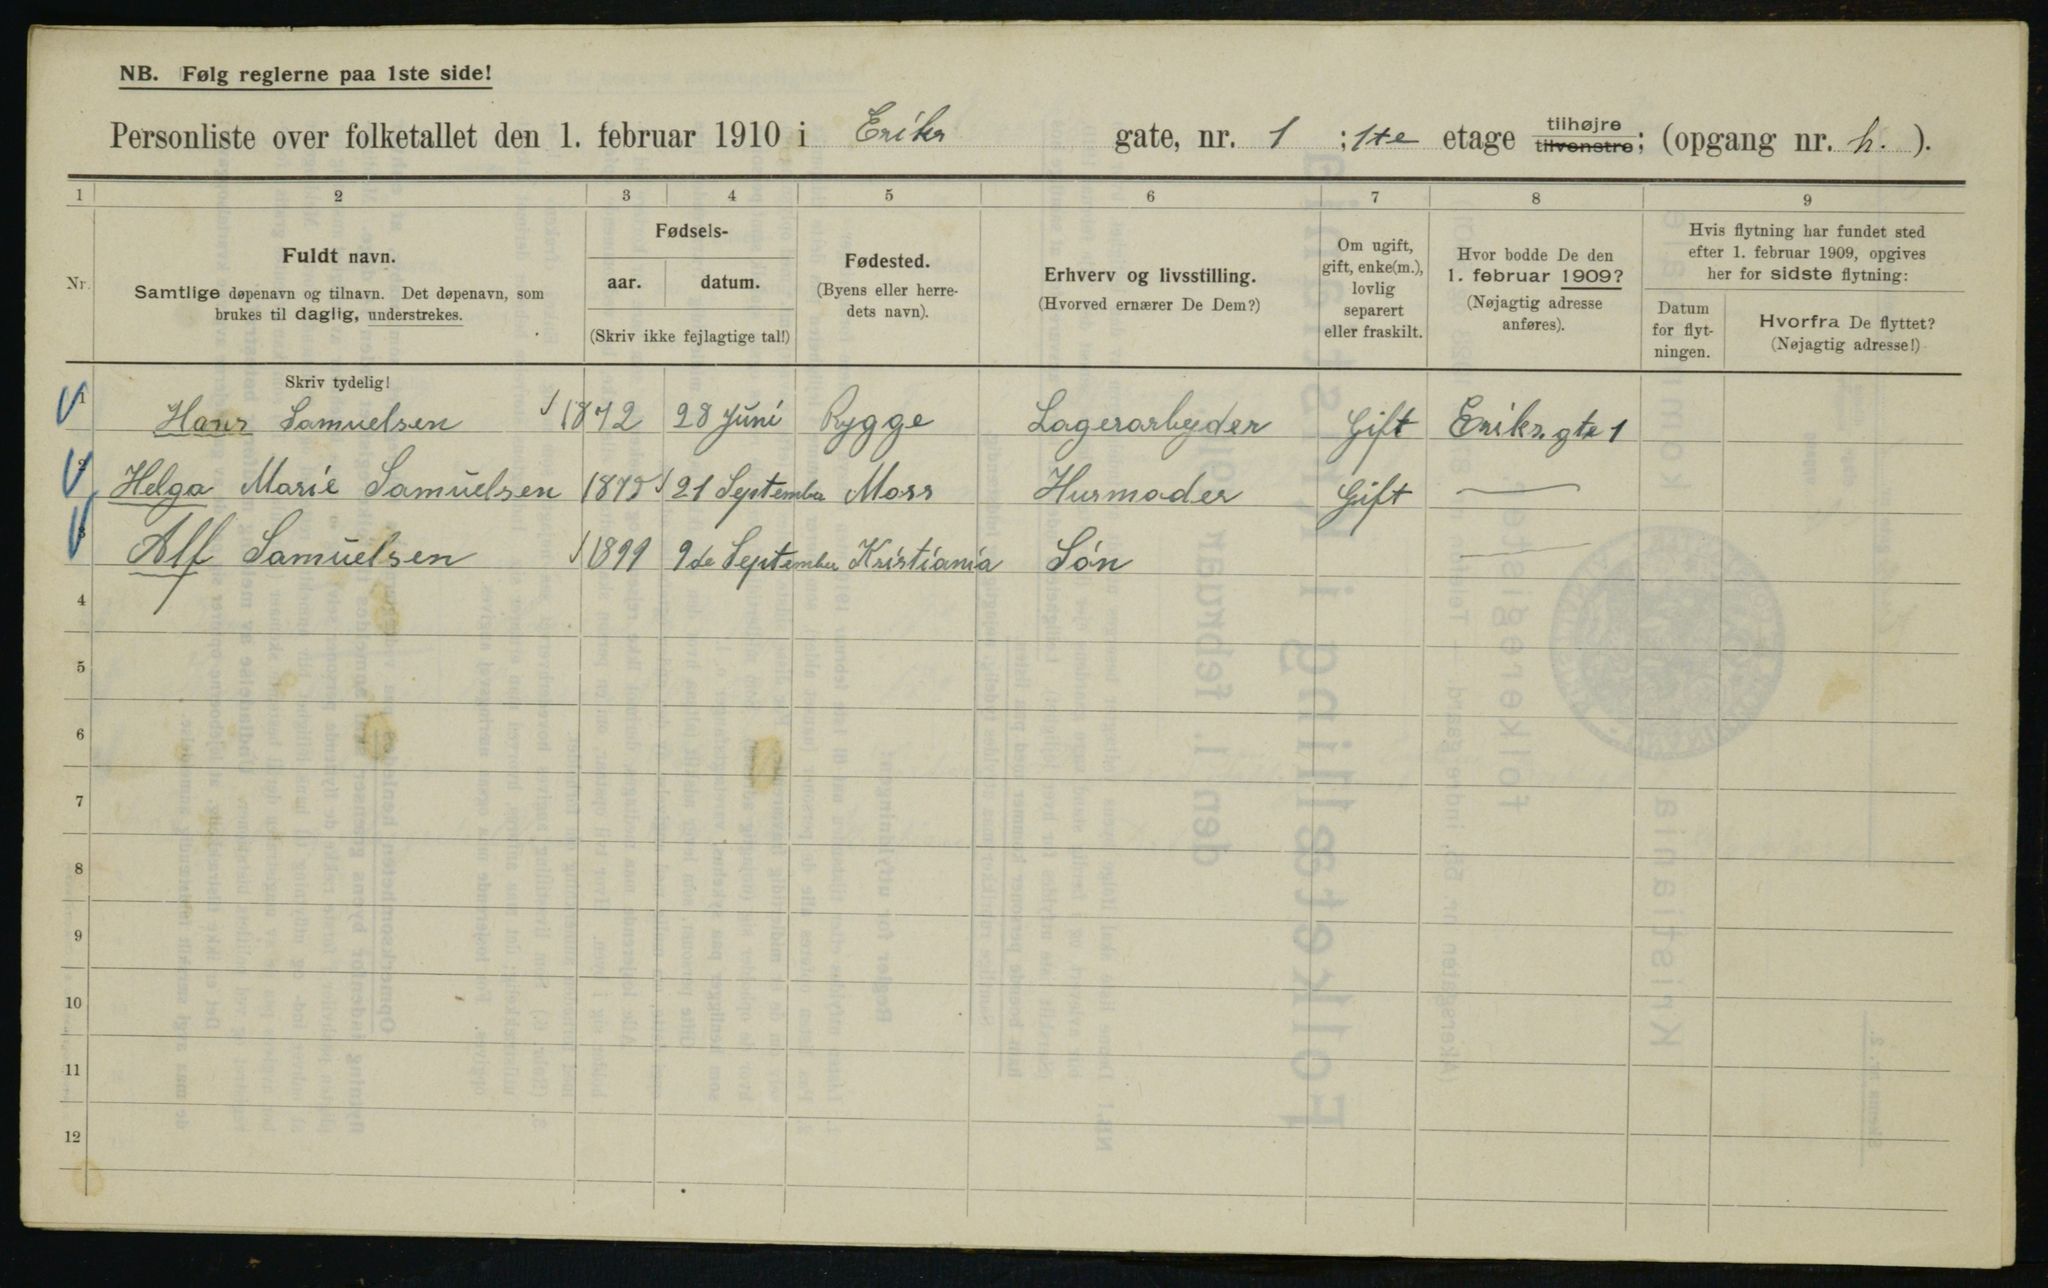 NB. Følg reglerne paa 1ste side!
Personliste over folketallet den 1. februar 1910 i Eriks gate, nr. 1 ; 1te etage tilhøjre tilvenstre; (opgang nr. h. ).
1 2 3 4 5 6 7 8 9
Nr.
Fuldt navn.
Samtlige døpenavn og tilnavn. Det døpenavn, som
brukes til daglig, understrekes.
Fødsels-
aar. datum.
(Skriv ikke fejlagtige tal!)
Fødested.
(Byens eller herre-
dets navn).
Erhverv og livsstilling.
(Hvorved ernærer De Dem?)
Om ugift,
gift, enke(m.),
lovlig
separert
eller fraskilt.
Hvor bodde De den
1. februar 1909?
(Nøjagtig adresse
anføres).
Hvis flytning har fundet sted
efter 1. februar 1909, opgives
her for sidste flytning:
Datum
for flyt-
ningen.
Hvorfra De flyttet?
(Nøjagtig adresse!)
Skriv tydelig!
1 Hans Samuelsen 1872 28 Juni Rygge Lagerarbeyder Gift Eriks. gte 1
2 Helga Marie Samuelsen 21 September Moss Husmoder Gift —
3 Alf Samuelsen 1899 9de September Kristiania Søn —
4
5
6
7
8
9
10
11
12